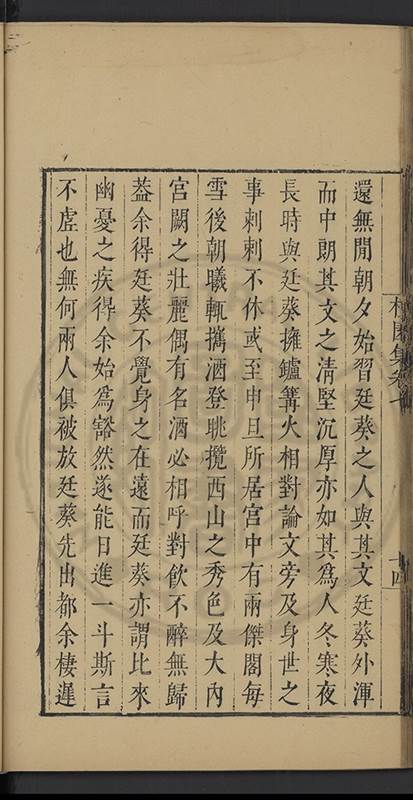 還無閒朝夕始習廷葵之人與其文廷葵外渾
而中朗其文之清堅沉厚亦如其爲人冬寒夜
長時與廷葵擁鑪篝火相對論文旁及身世之
事刺刺不休或至申旦所居宮中有兩傑閣每
雪後朝曦輒攜酒登眺攬西山之秀色及大內
宮闕之壯麗偶有名酒必相呼對飲不醉無歸
葢余得廷葵不覺身之在遠而廷葵亦謂比來
幽憂之疾得余始爲豁然遂能日進一斗斯言
不虛也無何兩人俱被放廷葵先出都余棲遲